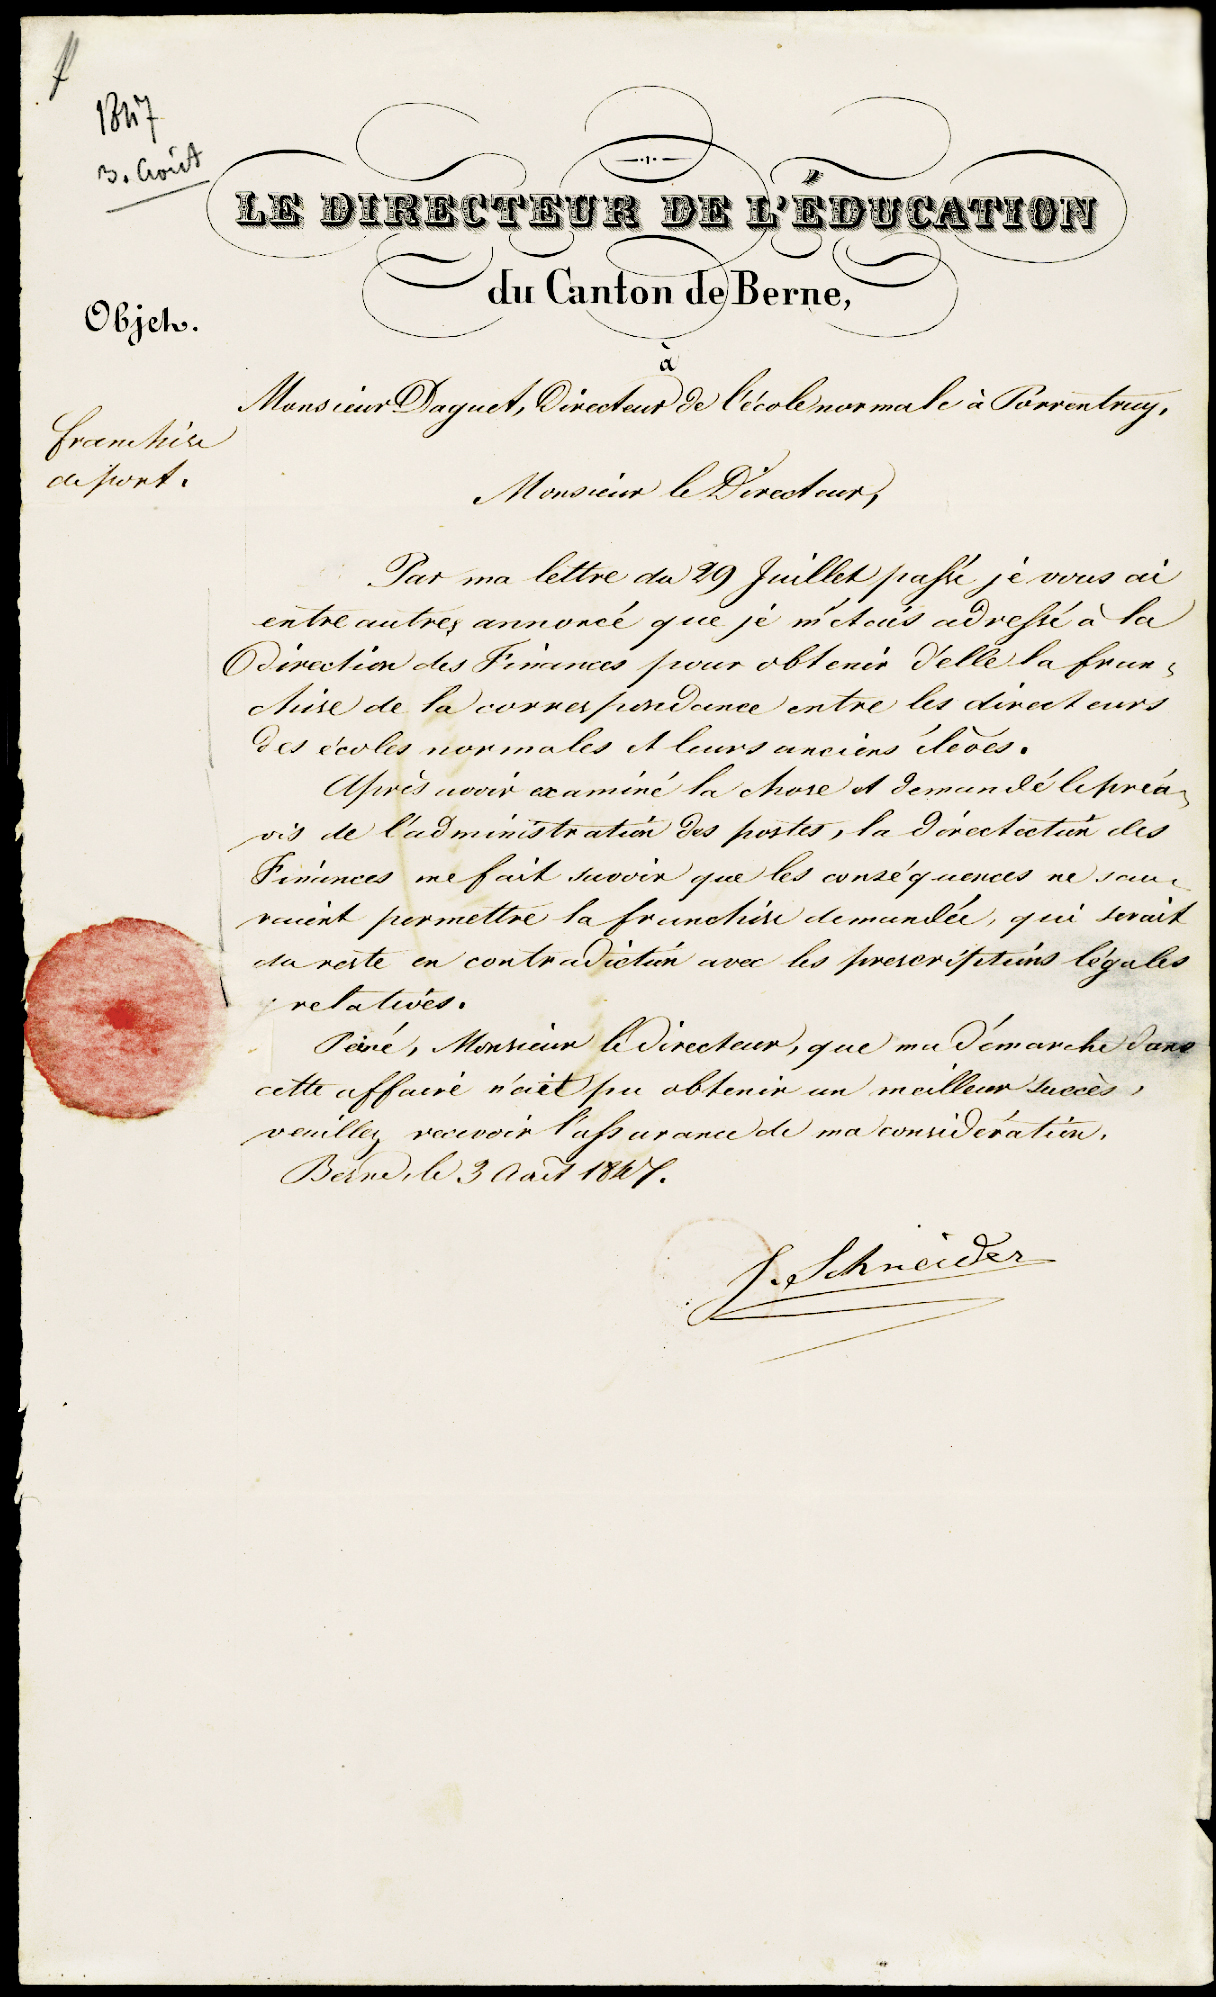 1847
3. Août
LE DIRECTEUR DE L'ÉDUCATION
du Canton de Berne,
Objet.
à
Monsieur Daguet, Directeur de l'école normale à Porrentruy.
franchise
de port.
Monsieur le Directeur,
Par ma lettre du 29 Juillet passé je vous ai
entre autres annoncé que je m'étais adressé à la
Direction des Finances pour obtenir d'elle la fran-
chise de la correspondance entre les directeurs
des écoles normales et leurs anciens élèves.
Après avoir examiné la chose et demandé le préa-
vis de l'administration des postes, la directection des
Finances me fait savoir que les conséquences ne sau-
raient permettre la franchise demandée, qui serait
du reste en contradiction avec les prescriptions légales
relatives.
Peiné, Monsieur le Directeur, que ma démarche dans
cette affaire n'ait pu obtenir un meilleur succès,
veuillez recevoir l'assurance de ma considération.
Berne, le 3 Août 1847.
J. Schneider